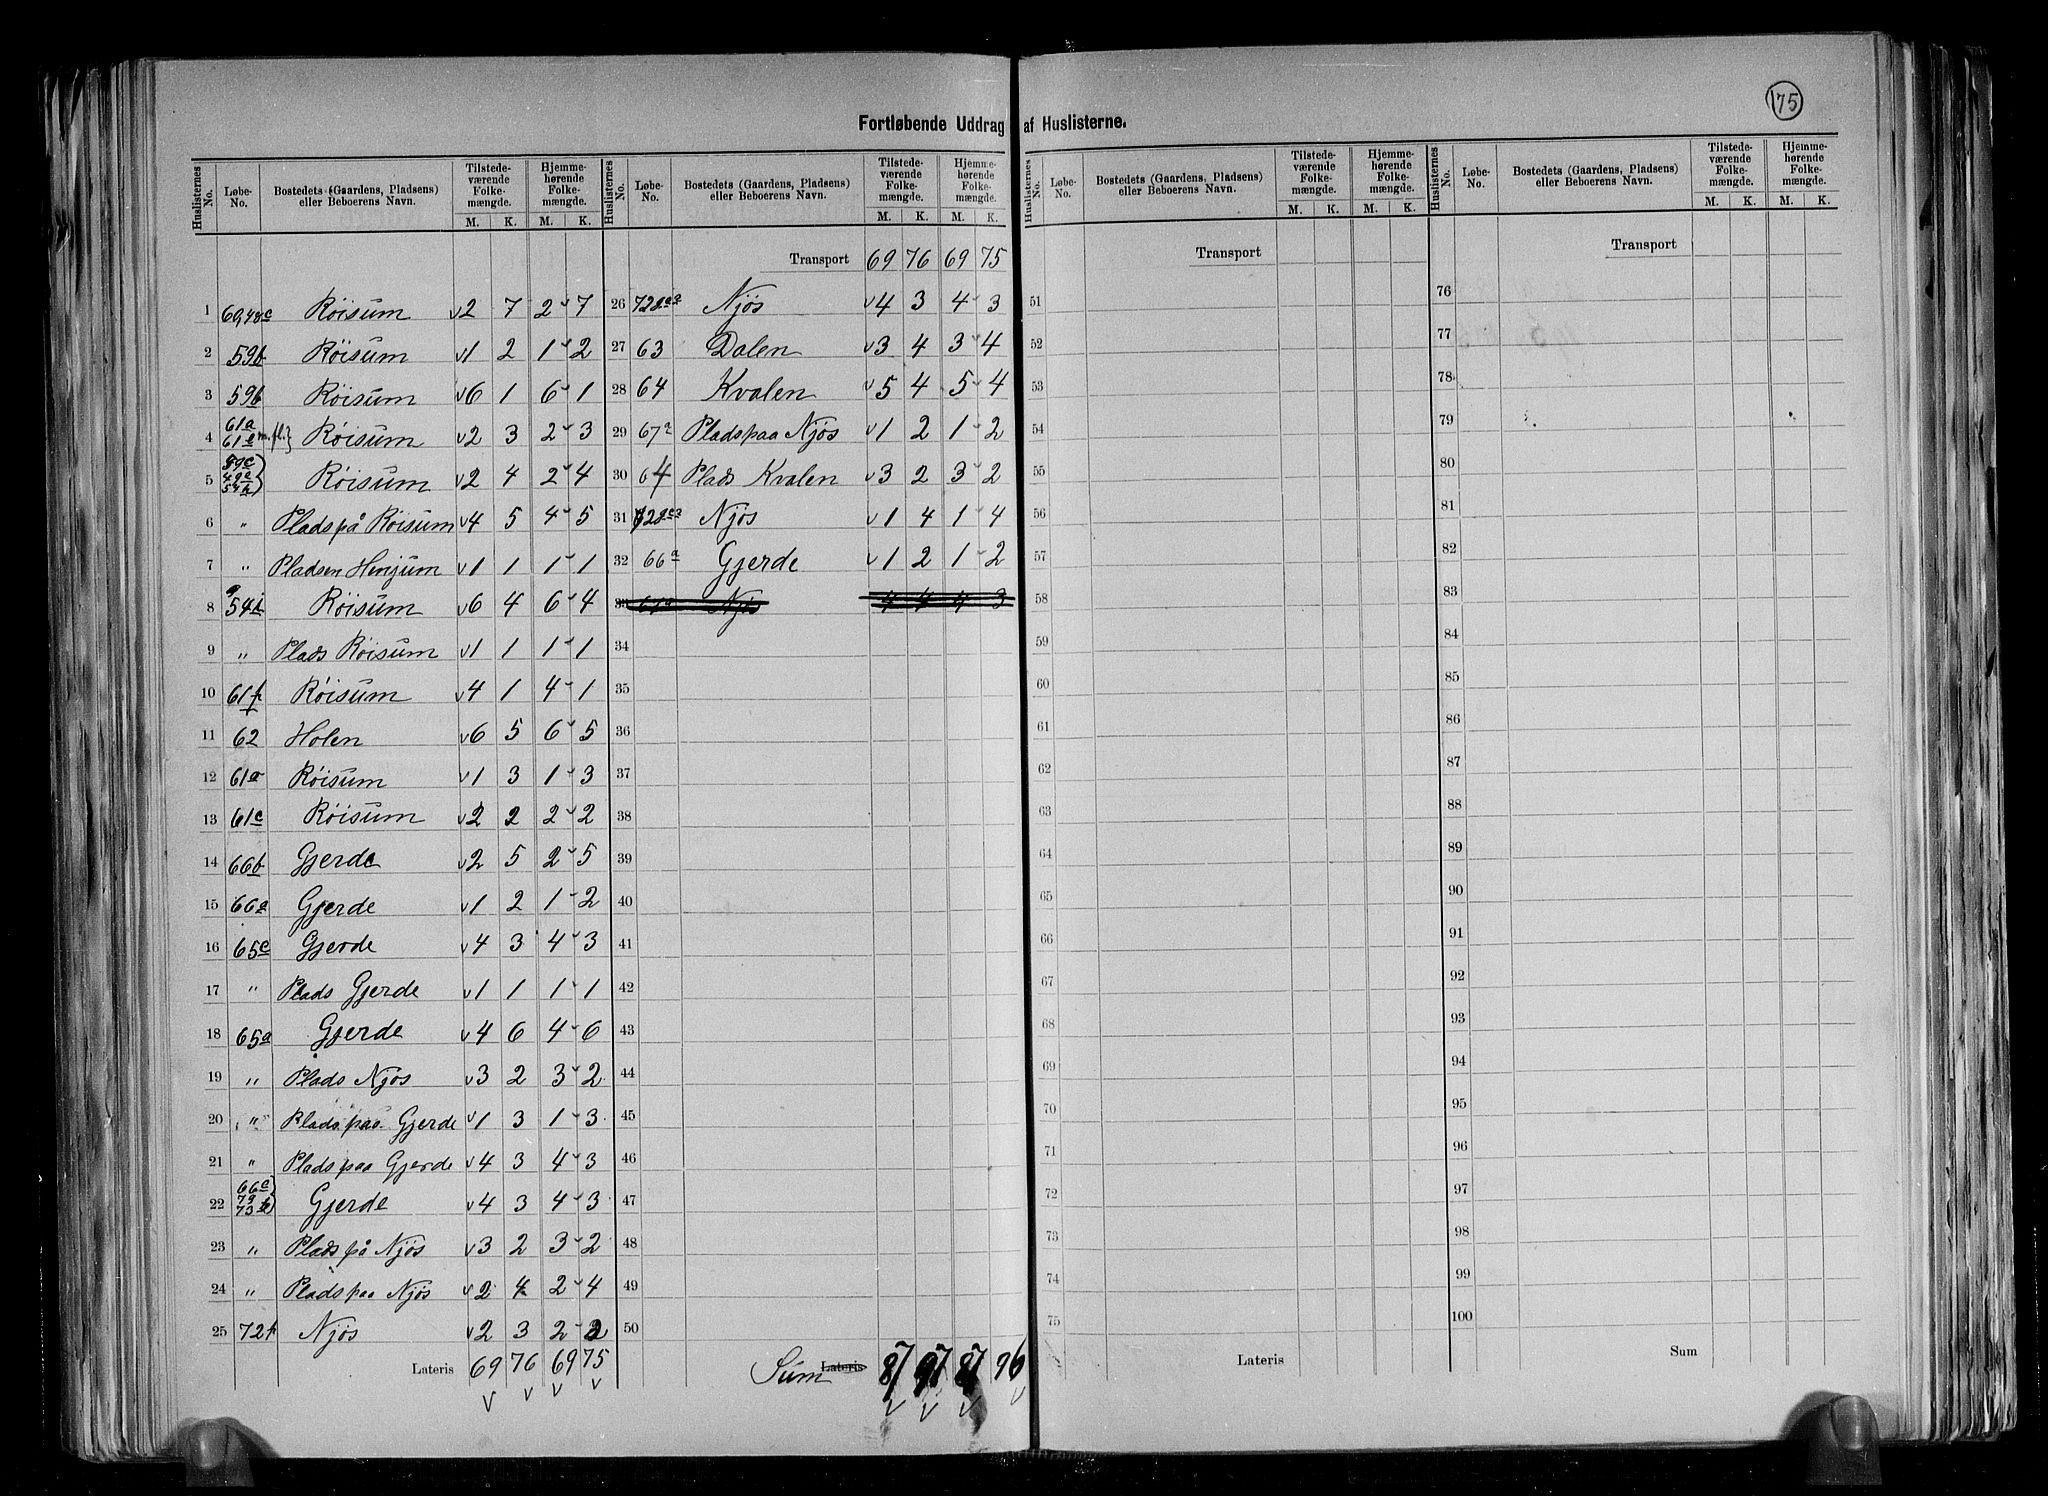 175
Fortløbende Uddrag af Huslisterne.
Huslisternes No. Løbe-No. Bostedets (Gaardens, Pladsens) eller Beboerens Navn. Tilstedeværende Folkemængde. M. K. Hjemmehørende Folkemængde. M. K.
1 60,48c Røisum 2 7 2 7
2 59b Røisum 1 2 1 2
3 59b Røisum 6 1 6 1
4 61a 61e m.fl.} Røisum 2 3 2 3
5 59c 49a 54b) Røisum 2 4 2 4
6 " Plads på Røisum 4 5 4 5
7 " Pladsen Henjum 1 1 1 1
8 54b Røisum 6 4 6 4
9 " Plads Røisum 1 1 1 1
10 61f Røisum 4 1 4 1
11 62 Holen 6 5 6 5
12 61a Røisum 1 3 1 3
13 61c Røisum 2 2 2 2
14 66b Gjerde 2 5 2 5
15 66a Gjerde 1 2 1 2
16 65c Gjerde 4 3 4 3
17 " Plads Gjerde 1 1 1 1
18 65a Gjerde 4 6 4 6
19 " Plads Njøs 3 2 3 2
20 " Plads paa Gjerde 1 3 1 3
21 " Plads paa Gjerde 4 3 4 3
22 66c 72 73b) Gjerde 4 3 4 3
23 " Plads på Njøs 3 2 3 2
24 " Plads paa Njøs 2 4 2 4
25 72b Njøs 2 3 2 2
Lateris 69 76 69 75
Huslisternes No. Løbe-No. Bostedets (Gaardens, Pladsens) eller Beboerens Navn. Tilstedeværende Folkemængde. M. K. Hjemmehørende Folkemængde. M. K.
Transport 69 76 69 75
26 Njøs 4 3 4 3
27 63 Dalen 3 4 3 4
28 64 Kvalen 5 4 5 4
29 67a Plads paa Njøs 1 2 1 2
30 64 Plads Kvalen 3 2 3 2
31 Njøs 1 4 1 4
32 66a Gjerde 1 2 1 2
33 Njøs 4 4 4 3
34
35
36
37
38
39
40
41
42
43
44
45
46
47
48
49
50
Sum Lateris 87 97 87 96
Huslisternes No. Løbe-No. Bostedets (Gaardens, Pladsens) eller Beboerens Navn. Tilstedeværende Folkemængde. M. K. Hjemmehørende Folkemængde. M. K.
Transport
51
52
53
54
55
56
57
58
59
60
61
62
63
64
65
66
67
68
69
70
71
72
73
74
75
Lateris
Huslisternes No. Løbe-No. Bostedets (Gaardens, Pladsens) eller Beboerens Navn. Tilstedeværende Folkemængde. M. K. Hjemmehørende Folkemængde. M. K.
Transport
76
77
78
79
80
81
82
83
84
85
86
87
88
89
90
91
92
93
94
95
96
97
98
99
100
Sum